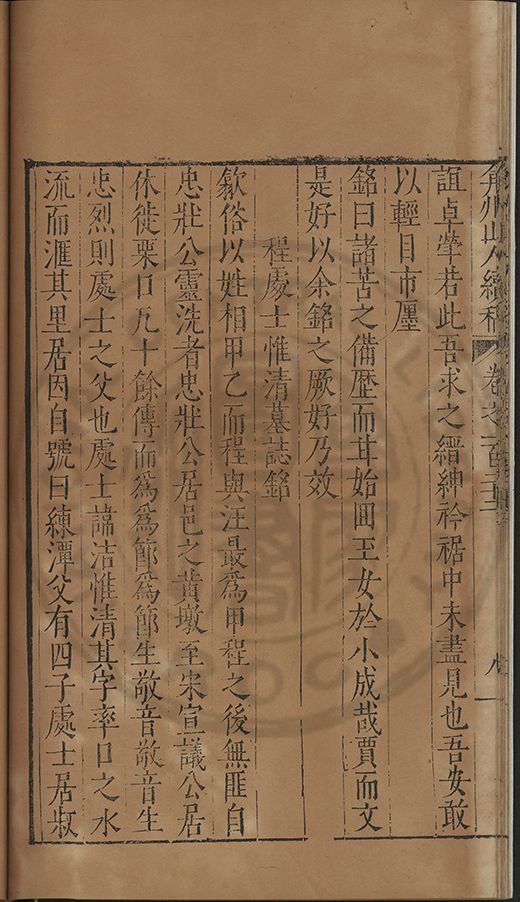 弇州山人續稿 卷之一百十三 八
誼卓犖若此吾求之縉紳衿裾中未盡見也吾安敢
以輕目市廛
銘曰諸苦之備歷而茸始回王女於小成哉賈而文
是好以余銘之厥好乃效
程處士惟清墓誌銘
歙俗以姓相甲乙而程與汪最爲甲程之後無匪自
忠壯公靈洗者忠壯公居邑之黄墩至宋宣議公居
休徙栗口凡十餘傳而爲爲節爲節生敬音敬音生
忠烈則處士之父也處士諱洁惟清其字率口之水
流而滙其里居因自號曰練潭父有四子處士居叔